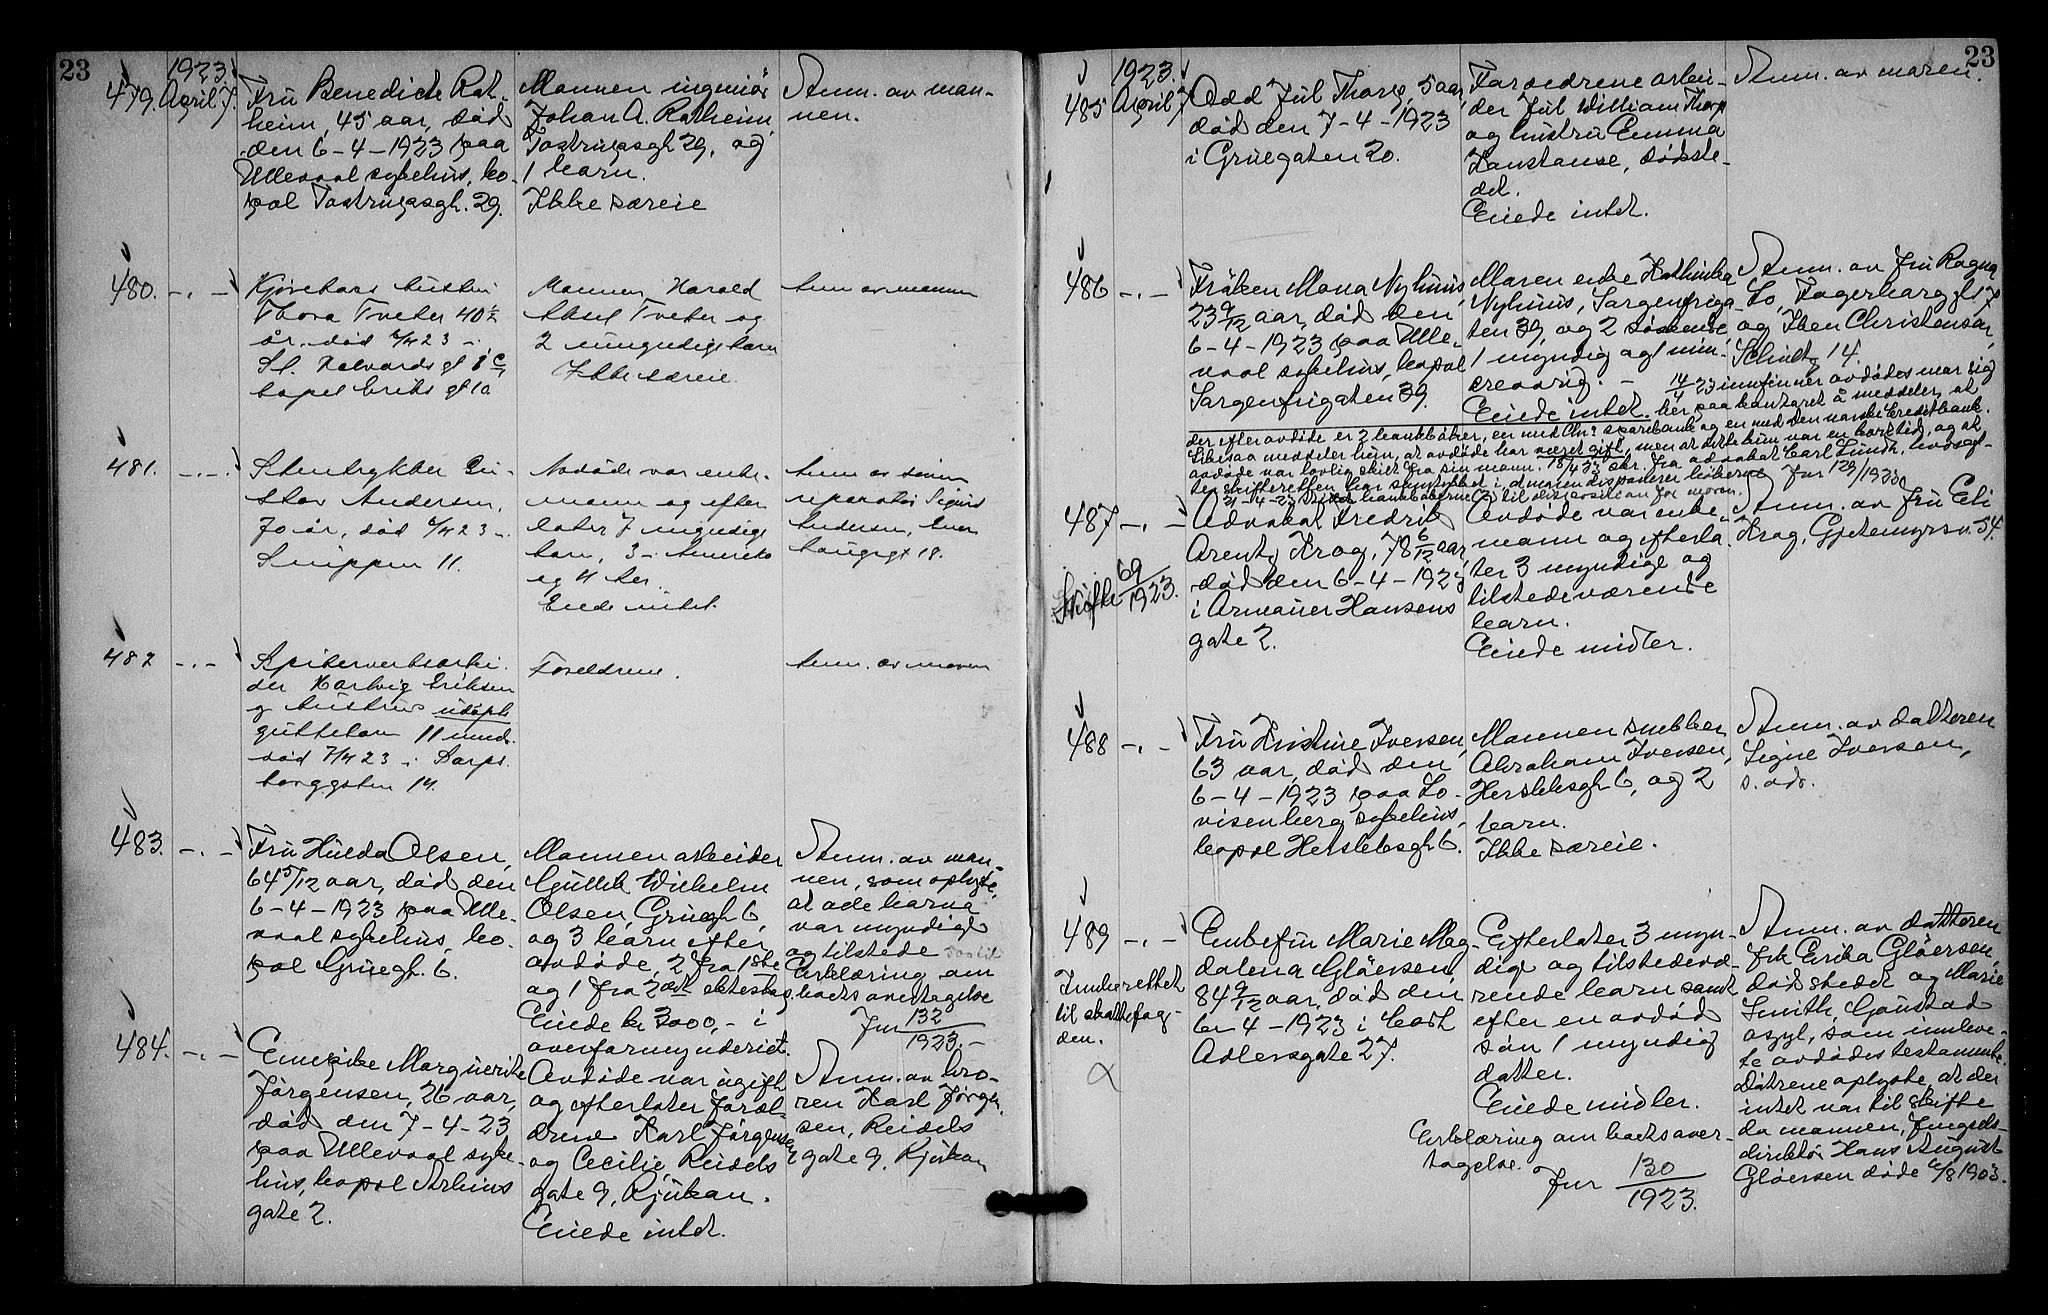 23
1923.
479. April 7.
Fru Benedicte Rat-
heim, 45 aar, död
den 6-4-1923 paa
Ullevaal sykehus, bo-
pæl Tostrupsgt. 29.
Mannen ingeniör
Johan A. Ratheim
Tostrupsgt 29, og
1 barn.
Ikke særeie
Anm. av man-
nen.
480. -"-
Kjörekars hustru
Thora Tveter 40 1/2
år. död 6/4 23 i
St. Halvards gt 1 c
bopel Eriks gt 10
Mannen Harald
Aksel Tveter og
2 umyndige barn
Ikke særeie.
Anm av mannen
481. -"-
Stentrykker Gu-
stav Andersen,
70 år, död 6/4 23 i
Snippen 11.
Avdöde var enke-
mann og efter
later 7 myndige
barn, 3 i Amerika
og 4 her.
Eiede intet.
Anm av sönnen
reparatör Sigurd
Andersen, Ener
haugsgt 18.
482 -"-
Spigerverksarbei-
der Hartvig Eriksen
og hustrus udöpt
guttebarn 11 mnd.
död 7/4 23 i Sarps
borggaten 14.
Foreldrene.
Anm. av moren
483. -"-
Fru Hulda Olsen,
64 5/12 aar, död den
6-4-1923 paa Ulle-
vaal sykehus, bo-
pæl Gruegt. 6.
Mannen arbeider
Gullik Wilhelm
Olsen, Gruegt 6,
og 3 barn efter
avdöde, 2 fra 1ste
og 1 fra 2det ekteskap.
Eiede kr 3000,- i
overformynderiet.
Anm. av man-
nen, som oplyste,
at alle barna
var myndige
og tilstede
Erklæring om
boets overtagelse
Jnr 132/1923.-
484. -"-
Ennepike Marguerite
Jörgensen, 26 aar,
död den 7-4-23
paa Ullevaal syke-
hus, bopæl Arbins
gate 2.
Avdöde var ugift
og efterlater foræl-
drene Karl Jörgensen
og Cecilie, Reidels
gate 9, Rjukan.
Eiede intet.
Anm. av bro-
ren Karl Jörgen-
sen, Reidels
gate 9, Rjukan
23
1923.
485 April 7.
Odd Jul Thorp, 5 aar,
död den 7-4-1923
i Gruegaten 20.
Forældrene arbei-
der Jul William Thorp
og hustru Emma
Konstanse, dödste-
det.
Eiede intet.
Anm. av moren.
486 -"-
Fröken Mona Nyhuus,
23 9/12 aar, död den
6-4-1923 paa Ulle-
vaal sykehus, bopæl
Sorgenfrigaten 39.
Moren enke Kathinka
Nyhuus, Sorgenfriga-
ten 39, og 2 söskende,
1 myndig og 1 min-
dreaarig. -
Eiede intet.
Anm. av fru Ragna
Lo, Fagerborggt 7
og Iben Christensen,
Schultzgt 14.
14/4 23 innfinner avdödes mor sig
her paa kontoret å meddeler, at
der efter avdöde er 2 bankböker, en med Chr.a sparebank og en med den norske Creditbank.
Likesaa meddeler hun, at avdöde har været gift, men at dette kun var en kort tid, og at
avdöde var lovlig skilt fra sin mann. 18/4 23 skr. fra advokat Carl Lundh, hvoref-
ter skifteretten har samtykket i at moren disponerer bökerne Jnr 129/1923.
21-4-23 bankbökerne (2) til disposition for moren.
487 -"-
Skifte 69/1923.
Advokat Fredrik
Arentz Krog, 78 6/12 aar,
död den 6-4-1923
i Armauer Hansens
gate 2.
Avdöde var enke-
mann og efterla-
ter 3 myndige og
tilstedeværende
barn.
Eiede midler.
Anm. av fru Eli
Krog, Gjetemyrsv. 54.
488 -"-
Fru Kristine Iversen,
63 aar, död den
6-4-1923 paa Lo-
visenberg sykehus,
bopæl Herslebsgt 6.
Mannen snekker
Abraham Iversen,
Herslebsgt 6, og 2
barn.
Ikke særeie.
Anm. av datteren
Signe Iversen,
s. ads.
489 -"-
Innberettet
til skattefog-
den.
Enkefru Marie Mag-
dalena Glöersen
84 9/12 aar, död den
6-4-1923 i Cort
Adlersgate 27.
Efterlater 3 myn-
dige og tilstedevæ-
rende barn samt
efter en avdöd
sön 1 myndig
datter.
Eiede midler.
Erklæring om boets over-
tagelse.
Jnr 130/1923.
Anm. av datteren
frk Erika Glöersen,
dödstedet og Marie
Smith, Gaustad
asyl, som innleve-
te avdödes testamente.
Dötrene oplyste, at der
intet var til skifte
da mannen, fengsels-
direktör Hans August
Glöersen döde 6/8 1903.